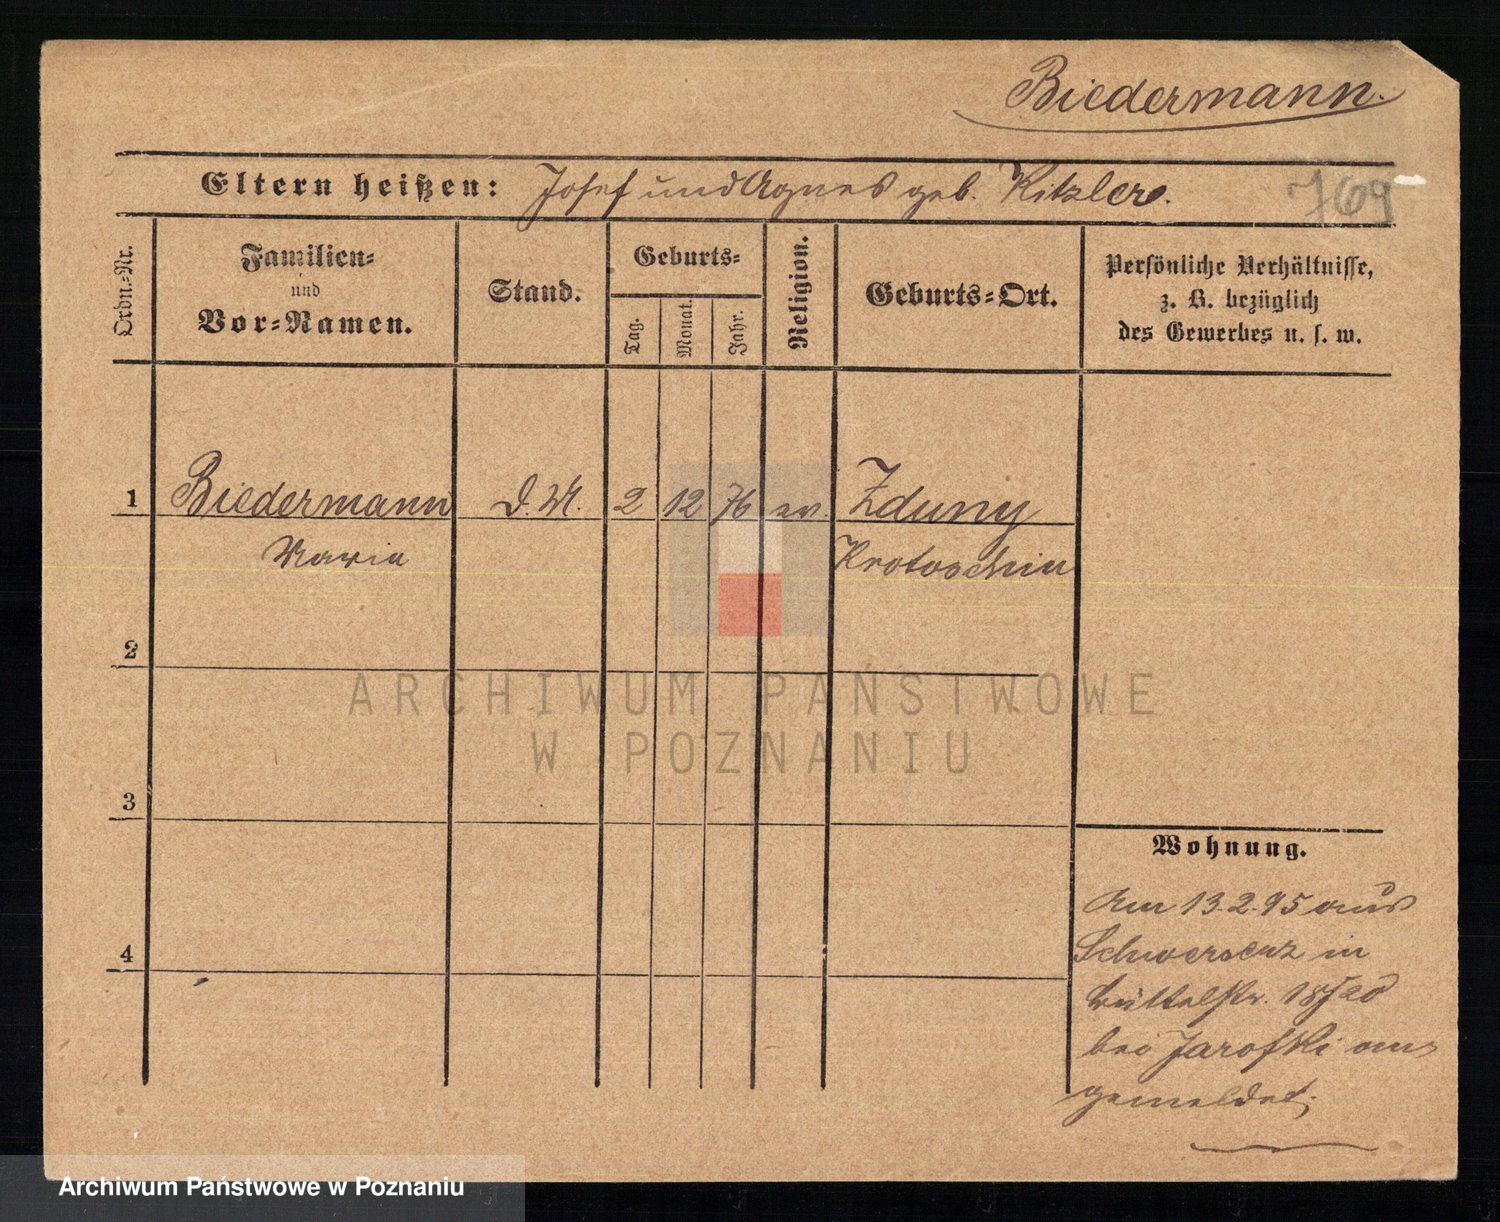 Biedermann.
Eltern heißen: Josef und Agnes geb. Kitzler.
769
Ordn.-Nr.
Familien-
und
Vor-Namen.
Stand.
Geburts-
Tag.
Monat.
Jahr.
Religion.
Geburts-Ort.
Persönliche Verhältnisse,
z. B. bezüglich
des Gewerbes u. s. w.
1 Biedermann D.M. 2 12 76 ev. Zduny
Maria Krotoschin
2
ARCHIWUM PAŃSTWOWE
W POZNANIU
3
4
Wohnung.
Am 13.2.95 aus
Schwersenz in
Büttelstr. 18/20
bei Jarofki an-
gemeldet.
Archiwum Państwowe w Poznaniu